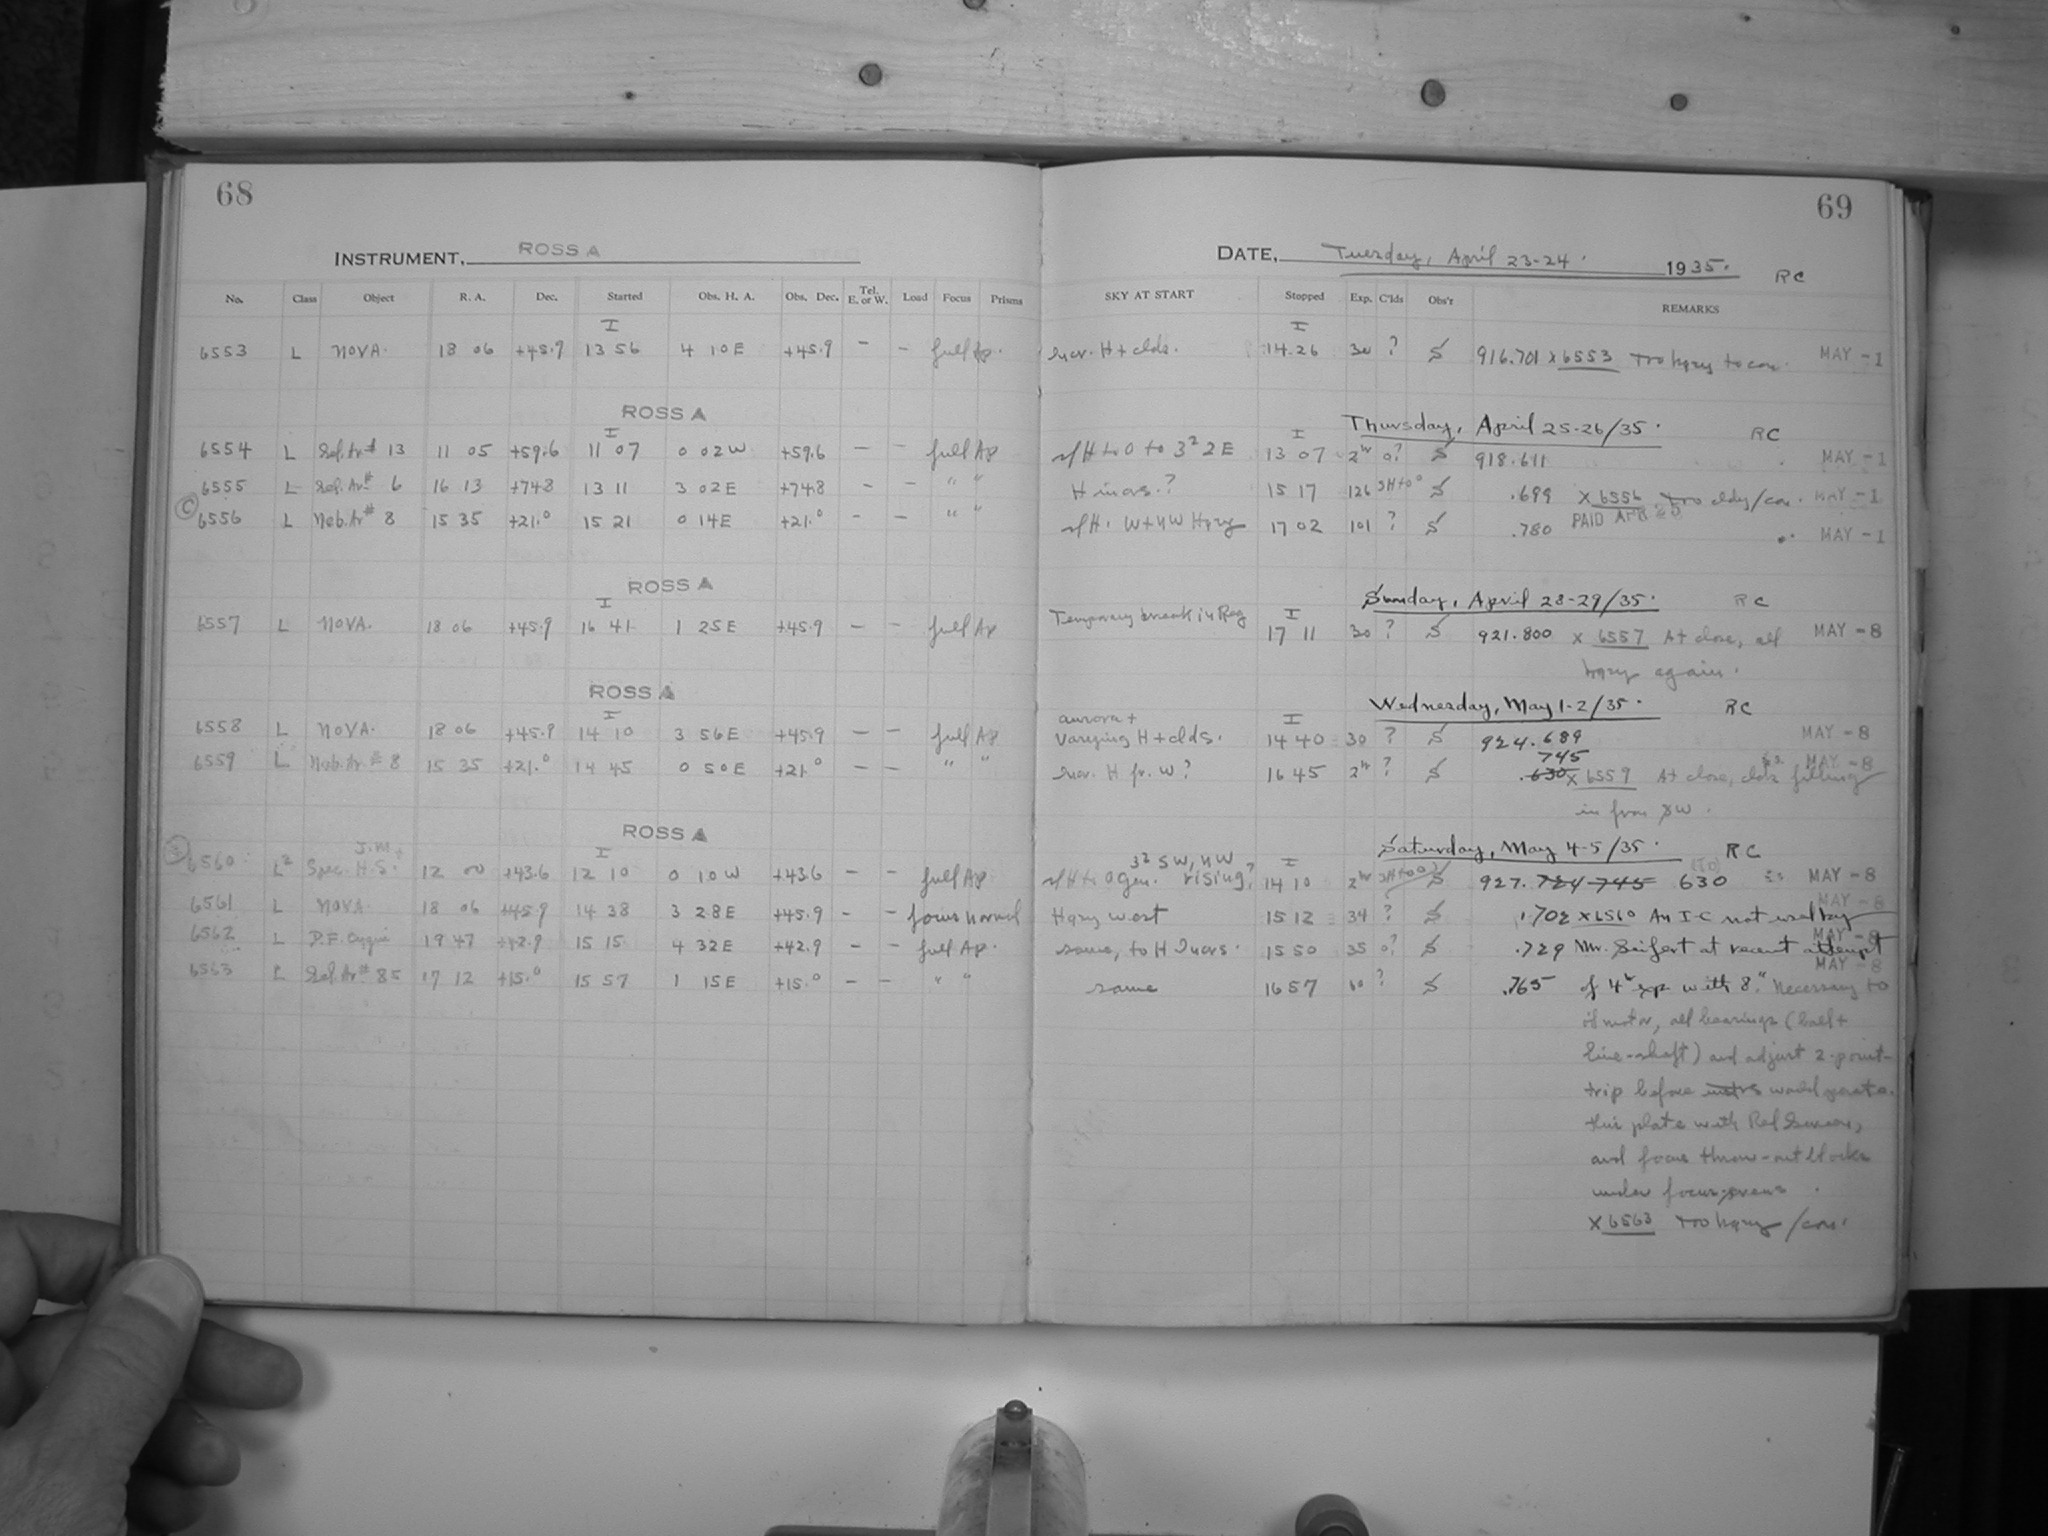 68
INSTRUMENT, ROSS A
No. Class Object R. A. Dec. Started Obs. H. A. Obs. Dec. Tel. E. or W. Load Focus Prisms
I
6553 L NOVA. 18 06 +45.9 13 56 4 10E +45.9 — — full Ap.
ROSS A
I
6554 L Sel. Ar # 13 11 05 +59.6 11 07 0 02W +59.6 — — full Ap
6555 L Sel. Ar # 6 16 13 +74.8 13 11 3 02E +74.8 — — " "
C 6556 L Neb. Ar # 8 15 35 +21.0 15 21 0 14E +21.0 — — " "
ROSS A
I
6557 L NOVA. 18 06 +45.9 16 41 1 25E +45.9 — — full Ap
ROSS A
I
6558 L NOVA. 18 06 +45.9 14 10 3 56E +45.9 — — full Ap
6559 L Neb. Ar # 8 15 35 +21.0 14 45 0 50E +21.0 — — " "
ROSS A
J.M. I
6560 L2 Spec. H.S. 12 00 +43.6 12 10 0 10W +43.6 — — full Ap
6561 L NOVA 18 06 +45.9 14 38 3 28E +45.9 — — focus normal
6562 L P.F. Cygni 19 47 +42.9 15 15 4 32E +42.9 — — full Ap.
6563 L Sel. Ar # 85 17 12 +15.0 15 57 1 15E +15.0 — — " "
69
DATE, Tuesday, April 23-24. 1935. RC
SKY AT START Stopped Exp. C'lds Obs'r REMARKS
I
H + clds. 14 26 30 ? S 916.701 x 6553 Too hazy to con. MAY -1
Thursday, April 25-26/35. RC
I
H to 0 to 3² 2E 13 07 2h 0? S 918.611 MAY -1
H incrs.? 15 17 126 S .699 x 6556 Too cldy/con. MAY -1
W + NW Hazy 17 02 101 ? S .780 PAID APR 25 MAY -1
Sunday, April 28-29/35. RC
I
Temporary break in 17 11 30 ? S 921.800 x 6557 At close, all MAY -8
hazy again.
Wednesday, May 1-2/35. RC
aurora + I
Varying H + clds. 14 40 30 ? S 924.689 MAY -8
745
H fr. W? 16 45 2h ? S .630 x 6559 At close, clds filling MAY -8
in from SW.
Saturday, May 4-5/35. RC
3² SW, NW I
H to 0 gen. rising? 14 10 2h S 927.724 745 630 MAY -8
Hazy west 15 12 34 ? S .702 x 6560 An I-C not used by MAY -8
same, to H Incrs. 15 50 35 0? S .729 Mr. Seifert at recent attempt MAY -8
same 16 57 60 ? S .765 of 4h exp with 8". Necessary to MAY -8
oil motor, all bearings (ball +
line-shaft) and adjust 2-point-
trip before would operate.
this plate with Red Screen,
and focus throw-out blocks
under focus
x 6563 Too hazy /con.